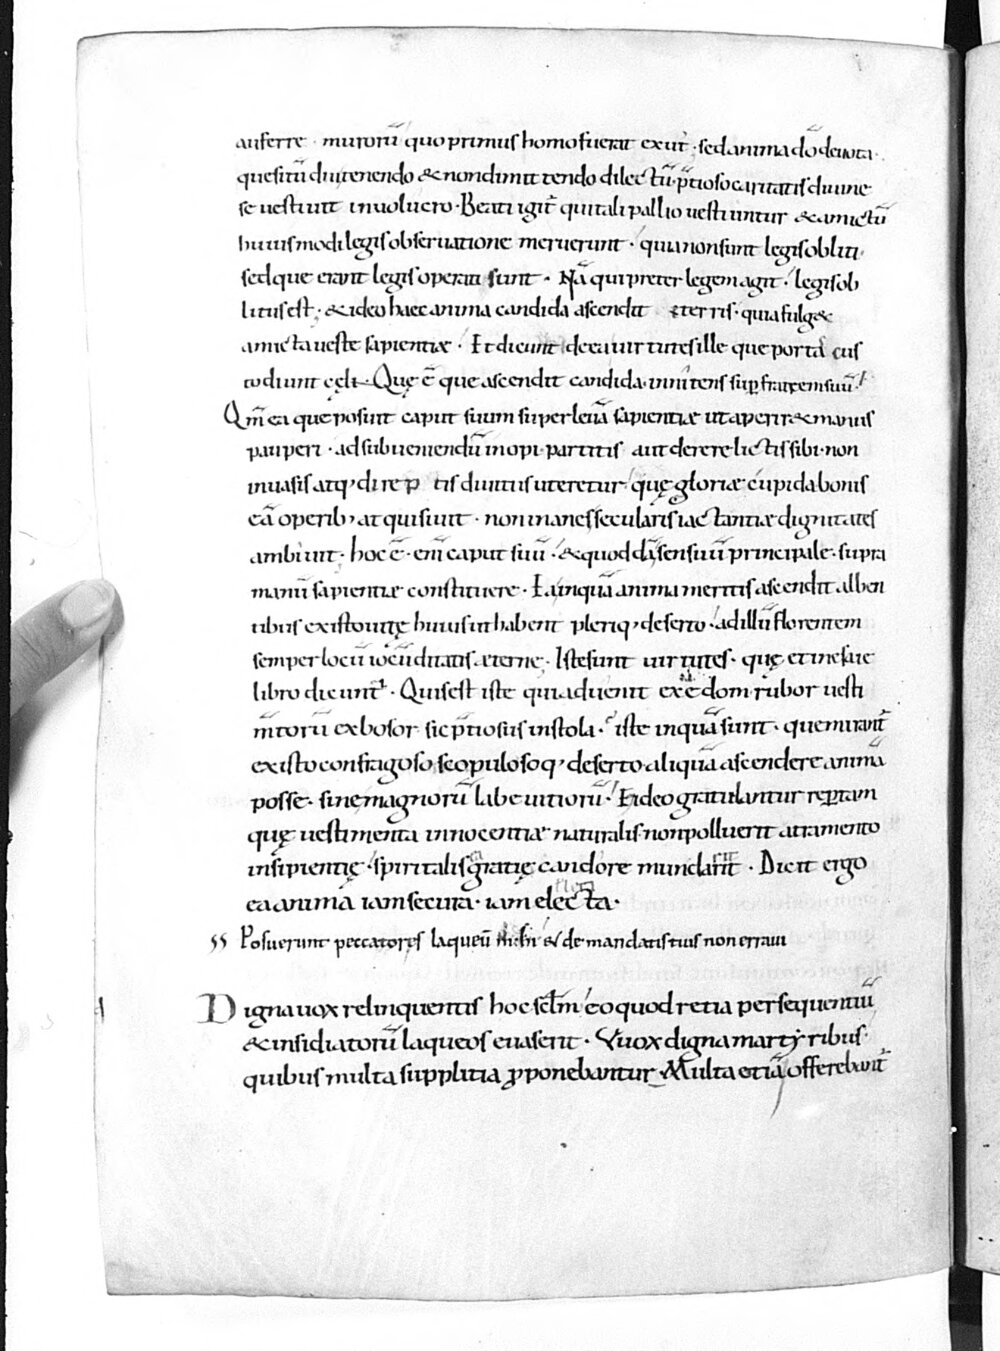 auferre · mutorũ quo primus homo fuerat exut᾽ · sed anima dõ deuota ·
quesitũ diu tenendo & non dimittendo dilectũ · p̃tioso caritatis diuine
se uestiuit inuolucro · Beati igit᷑ qui tali pallio uestiuntur & amictũ
huiusmodi legis obseruatione meruerunt · quia non sunt legis obliti ·
sed que erant legis operati sunt · Nã qui preter legem agit · legis ob
litus est · & ideo haec anima candida ascendit e terris · quia fulg&
amicta ueste sapientiæ · Et dicunt de ea uirtutes ille que portã cus
todiunt cęli · Quę ẽ que ascendit candida · innitens sup̱ fratrem suũ ·
Qm̃ ea que posuit caput suum super leuã sapientiæ ut aperir& manus
pauperi · ad subueniendũ inopi · partitis aut dere relictis sibi · non
inuasis atq; direp tis diuitiis uteretur · quę gloriæ cupida bonis
eã operib; atquisiuit · non inanes secularis iactantiæ dignitates
ambiuit · hoc ẽ · em̃ caput suũ · & quoddã sensuũ principale · supra
manũ sapientiæ constituere · Ea inquã anima meritis ascendit alben
tibus existo uitę huius ut habent pleriq; deserto · ad illũ florentem
semper locũ iocũditatis æterne · Iste sunt uirtutes · quę et in esaie
libro dicunt᷑ · Quis est iste qui aduenit ex edom · rubor uesti
m̃torũ ex bosor · sic p̃tiosus in stola · iste inquã sunt · que mirant᷑
existo confragoso scopulosoq; deserto aliquã ascendere animã
posse · sine magnorũ labe uitiorũ · Et ideo gratulantur rep̱tam
quę uestimenta innocentiæ naturalis · non polluerit atramento
insipientię · spiritalis gratię candore mundarit · Dicit ergo
ea anima iam secura · iam electa ·
ss Posuerunt peccatores laqueũ mihi & de mandatis tuis non erraui
Digna uox relinquentis hoc sc̃lm̃ · eo quod retia persequentiũ
& insidiatorũ laqueos euaserit · Vuox digna martyribus ·
quibus multa supplitia ꝓponebantur · Multa etiã offerebant᷑